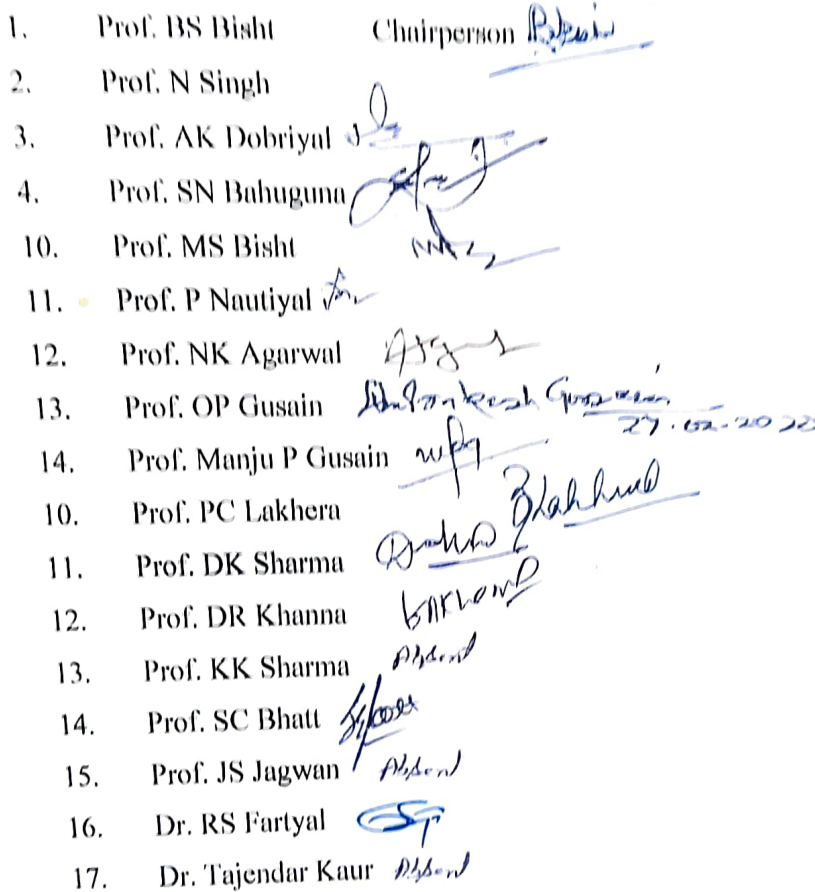 1. Prof. BS Bisht Chairperson
2. Prof. N Singh
3. Prof. AK Dobriyal
4. Prof. SN Bahuguna
10. Prof. MS Bisht
11. Prof. P Nautiyal
12. Prof. NK Agarwal
13. Prof. OP Gusain
27.02.2022
14. Prof. Manju P Gusain
10. Prof. PC Lakhera
11. Prof. DK Sharma
12. Prof. DR Khanna
13. Prof. KK Sharma Absent
14. Prof. SC Bhatt
15. Prof. JS Jagwan Absent
16. Dr. RS Fartyal
17. Dr. Tajendar Kaur Absent